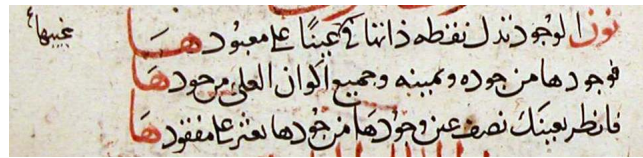 نون الوجود تدل نقطه ذاتها في عينًا على معبودها
غيبها
فوجودها من جوده ويمينه وجميع اكوان العلى من جودها
فانظر بعينك نصف عين وجودها من جودها تعثر على مفقودها